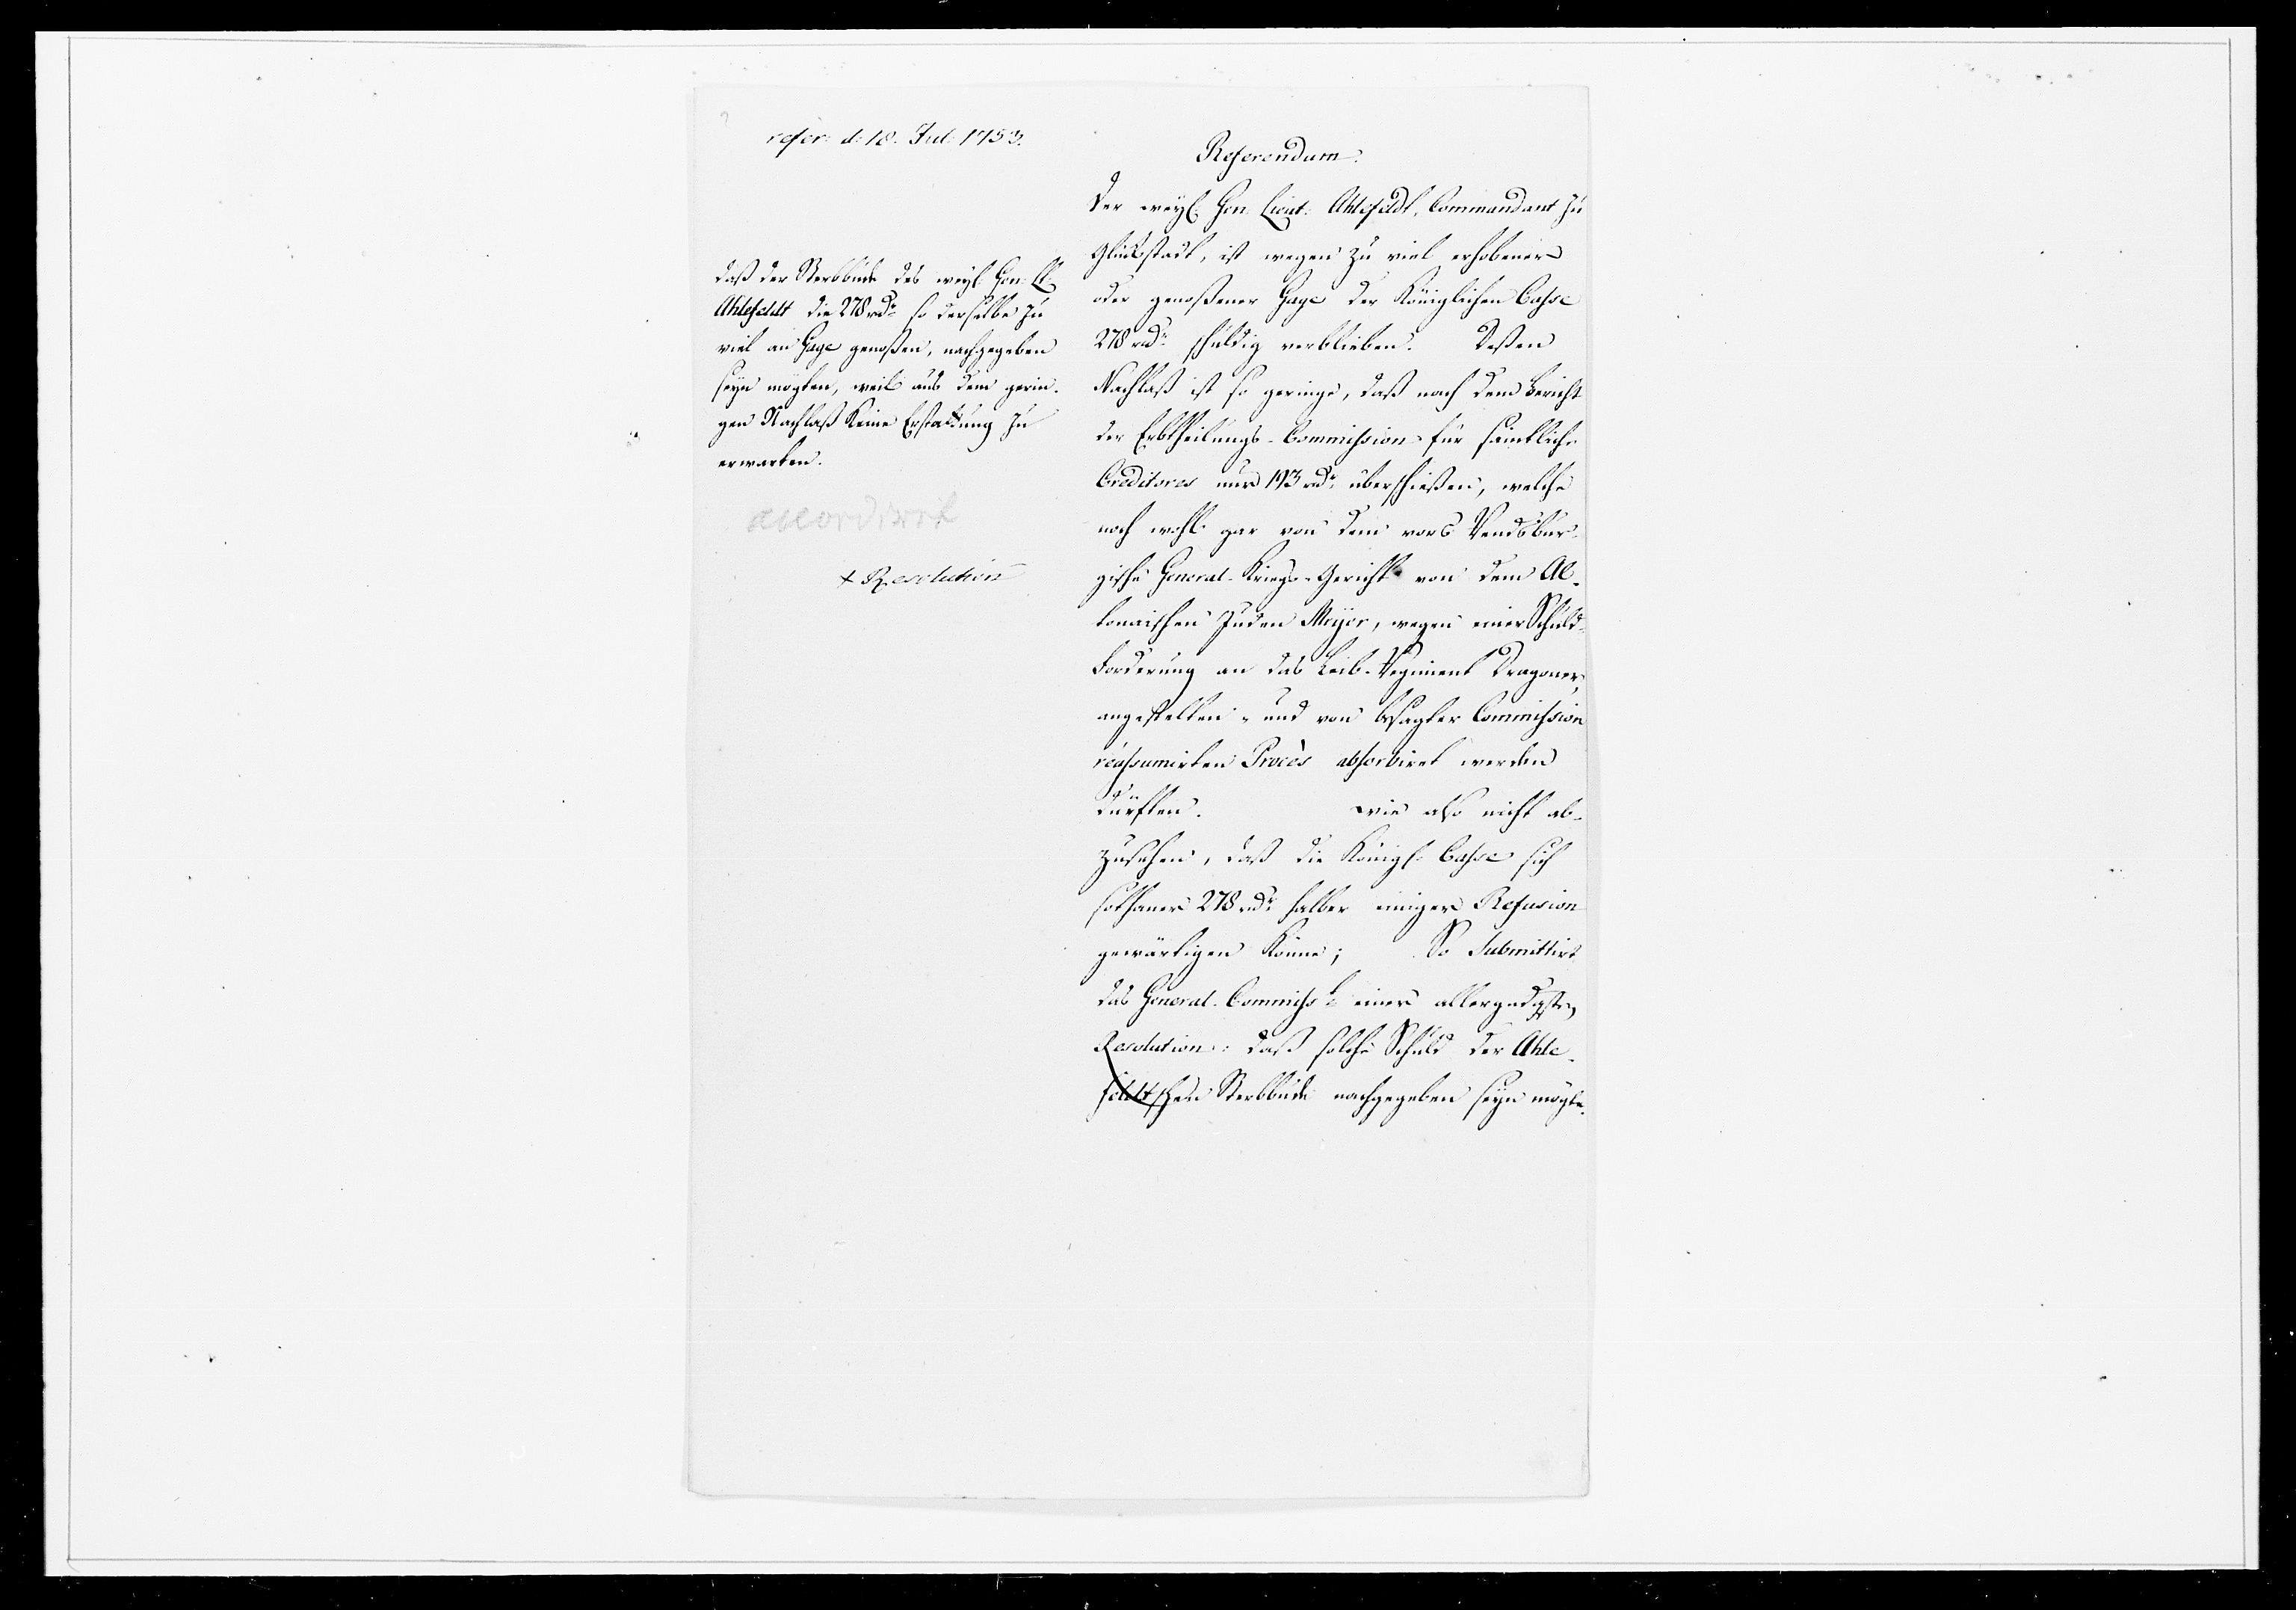 refer: d: 18. Jul: 1753.
daß der Sterbbude des weyl. Gen: Lt:
Ahlefeldt die 278 rdr so derselbe zu
viel an Gage genoßen, nachgegeben
seyn mögten, weil aus dem gerin-
gen Nachlaß keine Erstattung zu
erwarten.
accordirt
+ Resolution
Referendum.
Der weyl. Gen: Lieut: Ahlefeldt, Commandant zu
Glückstadt, ist wegen zu viel erhobener
oder genoßener Gage der Königlichen Casse
278 rdr schuldig verblieben. Deßen
Nachlaß ist so geringe, daß nach dem Bericht
der Erbtheilungs-Commission für sämtliche
Creditores nur 193 rdr überschießen, welche
noch wohl gar von dem vors Rendsbur-
gische General-Kriegs-Gericht von dem Al-
tonaischen Juden Meyer, wegen einer Schuld-
Forderung an das Leib-Regiment Dragoner,
angestelten- und von besagter Commission
reassumirten Procès absorbiret werden
dürften. wie also nicht ab-
zusehen, daß die Königl. Casse sich
sothaner 278 rdr halber einiger Refusion
gewärtigen könne; So Submittirt
das General-Commiss: einer allergndgsten
Resolution: daß solche Schuld der Ahle-
feldtschen Sterbbude nachgegeben seyn mögte.